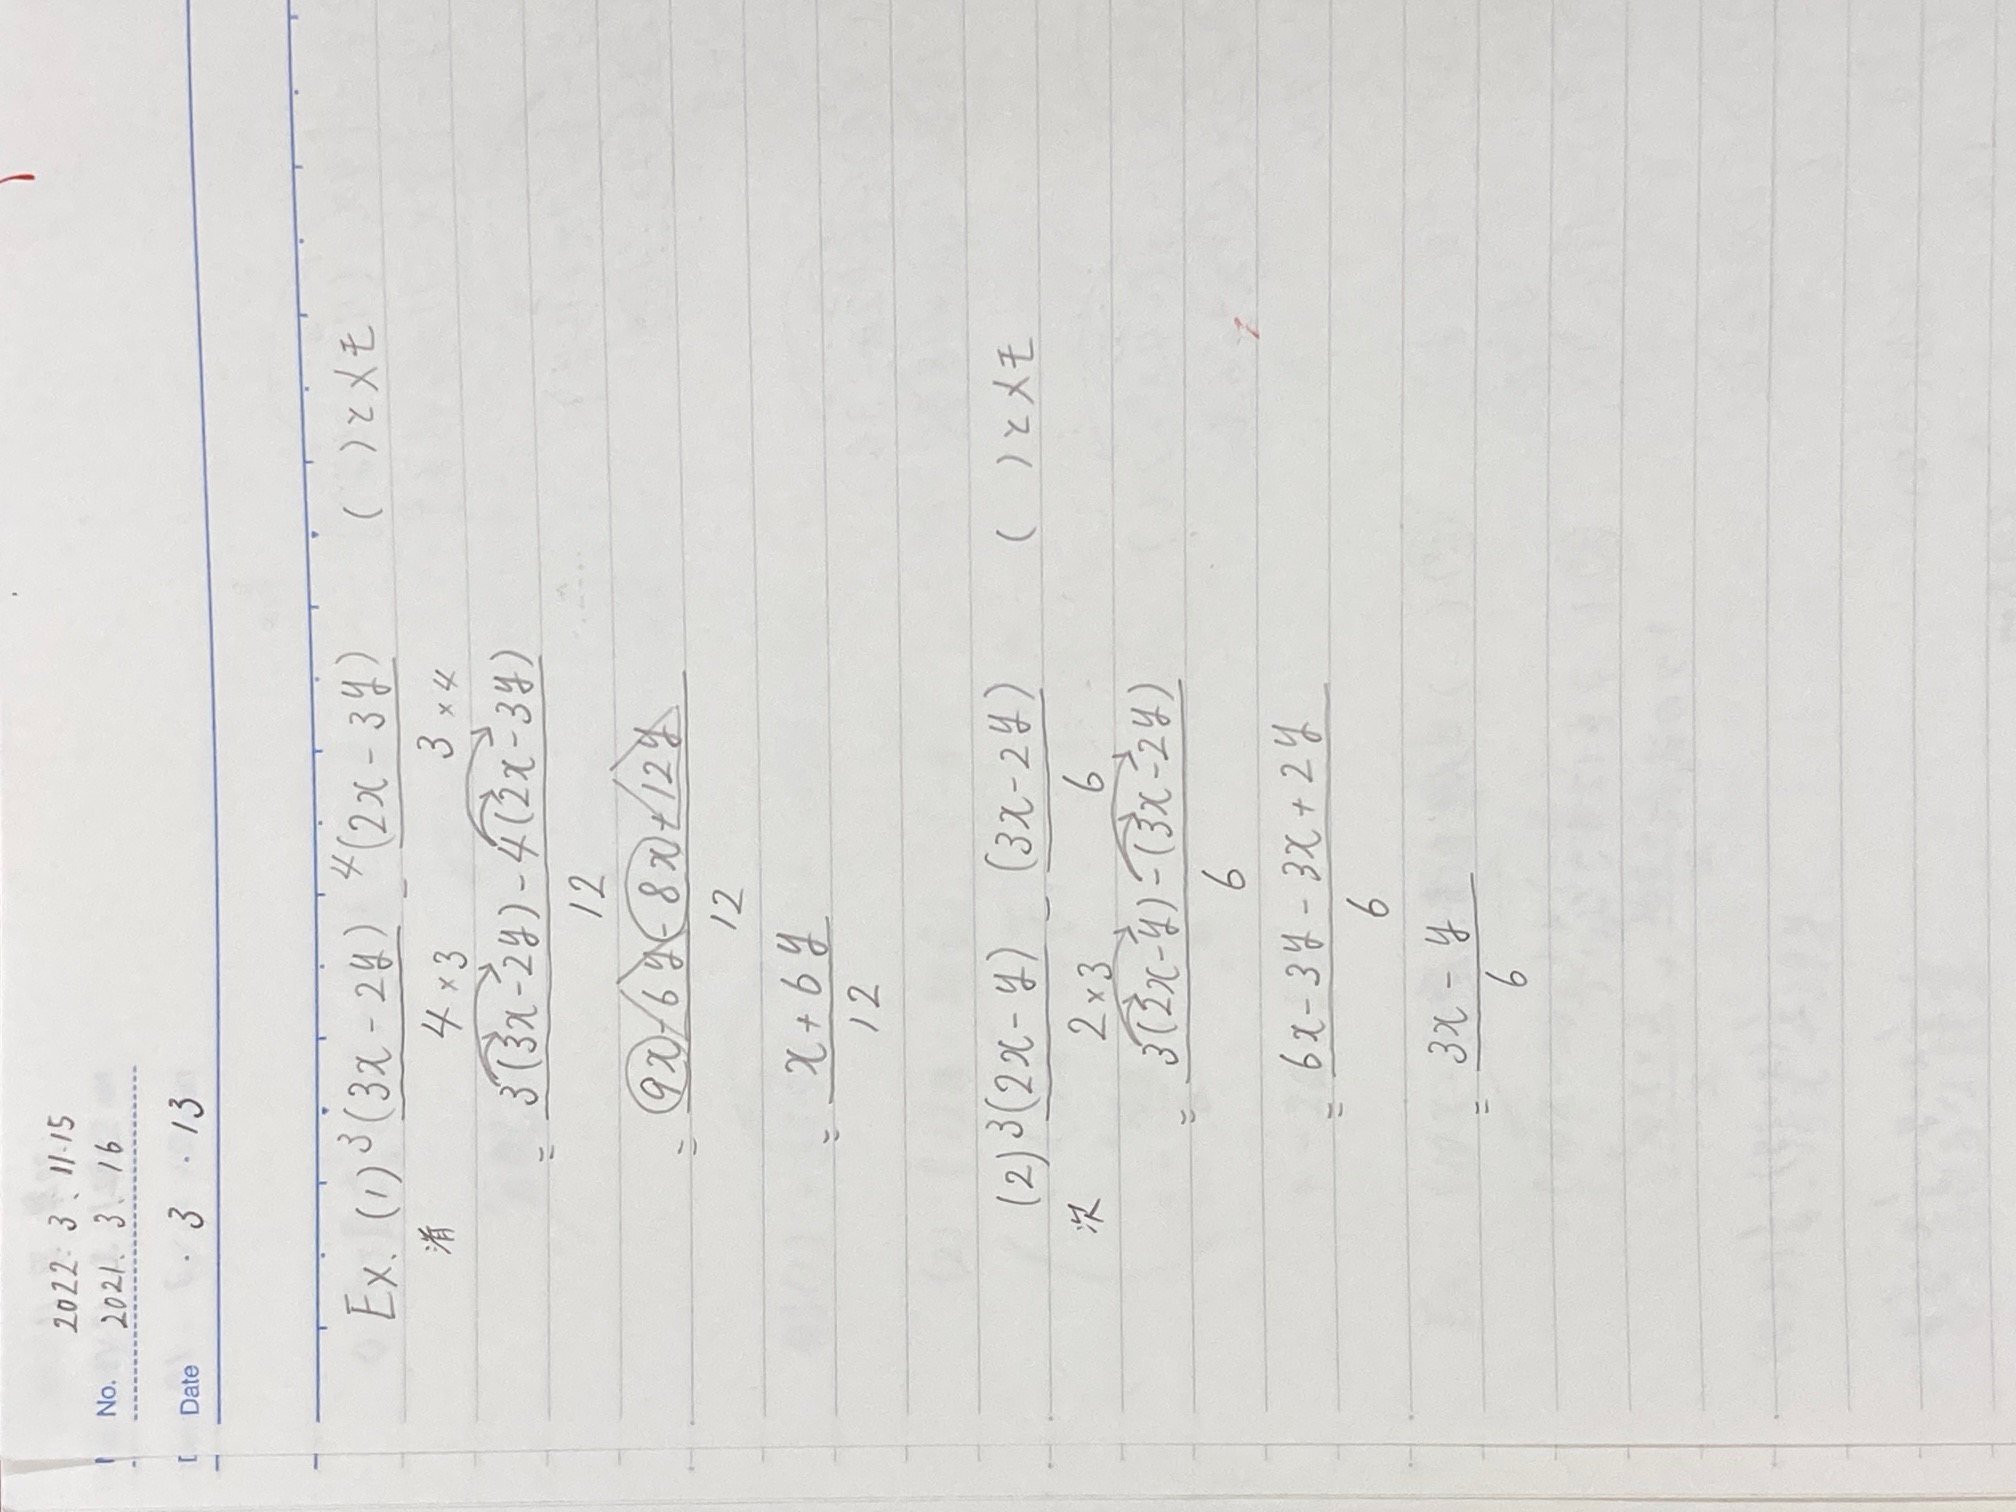 2022. 3. 11. 15
No. 2021. 3. 16
Date ・3 ・13
Ex. (1) 3(3x-2y) - 4(2x-3y) ( )とメモ
4×3 3×4
= 3(3x-2y)-4(2x-3y)
12
= 9x-6y-8x+12y
12
= x+6y
12
(2) 3(2x-y) - (3x-2y) ( )とメモ
次 2×3 6
= 3(2x-y)-(3x-2y)
6
= 6x-3y-3x+2y
6
= 3x-y
6